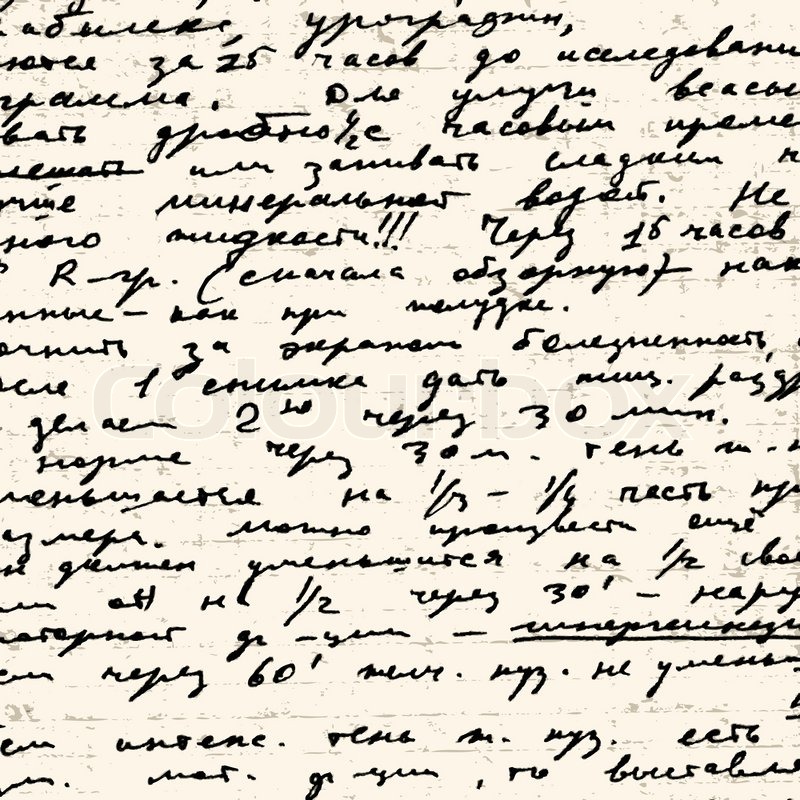 абилека, урографин,
ются за 15 часов до исследовани
грамма. Для улучш всасы
вать дробно ½ с часовым проме
или запивать сладким ч
учше минеральной водой. Не
ного жидкости!!! Через 15 часов
R-гр. (сначала обзорную) нак
нные - как при желудке.
очнить за экраном болезненность
осле 1го снимка дать пищ. раздр
делаем 2ой через 30 мин.
норме через 30 м. тень ж.п
меньшается на 1/3 - 1/4 часть пр
азмера. Можно произвести ещё
н должен уменьшится на 1/2 сво
на 1/2 через 30' - нару
моторной ф-ции -
ем через 60' желч. пуз. не умень
ем интенс. тень ж. пуз. есть
мот. ф-ции, то выставля
colourbox